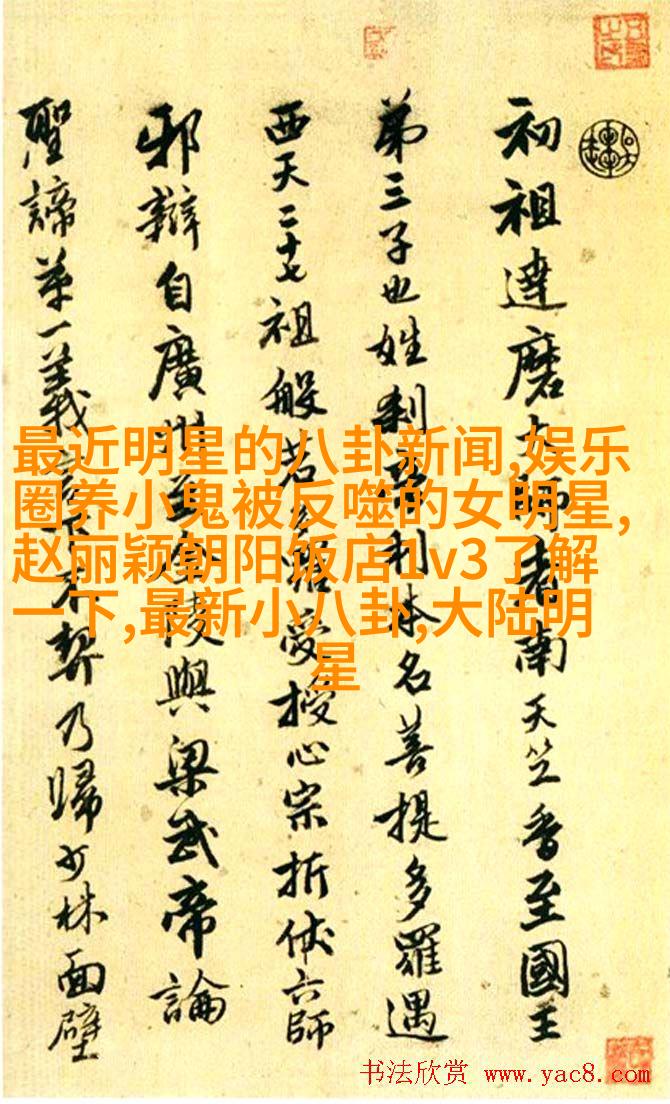 初祖達磨大師者南天竺香至國王
第三子也姓刹帝利本名菩提多羅遇
西天二十七祖般若多羅受授心宗折伏六師
邪辯自廣州至金陵與梁武帝論
聖諦第一義言下未契乃歸少林面壁
最近明星的八卦新闻,娱乐
圈养小鬼被反噬的女明星,
赵丽颖朝阳饭店1v3了解
一下,最新小八卦,大陆明
星
书法欣赏 www.yac8.com